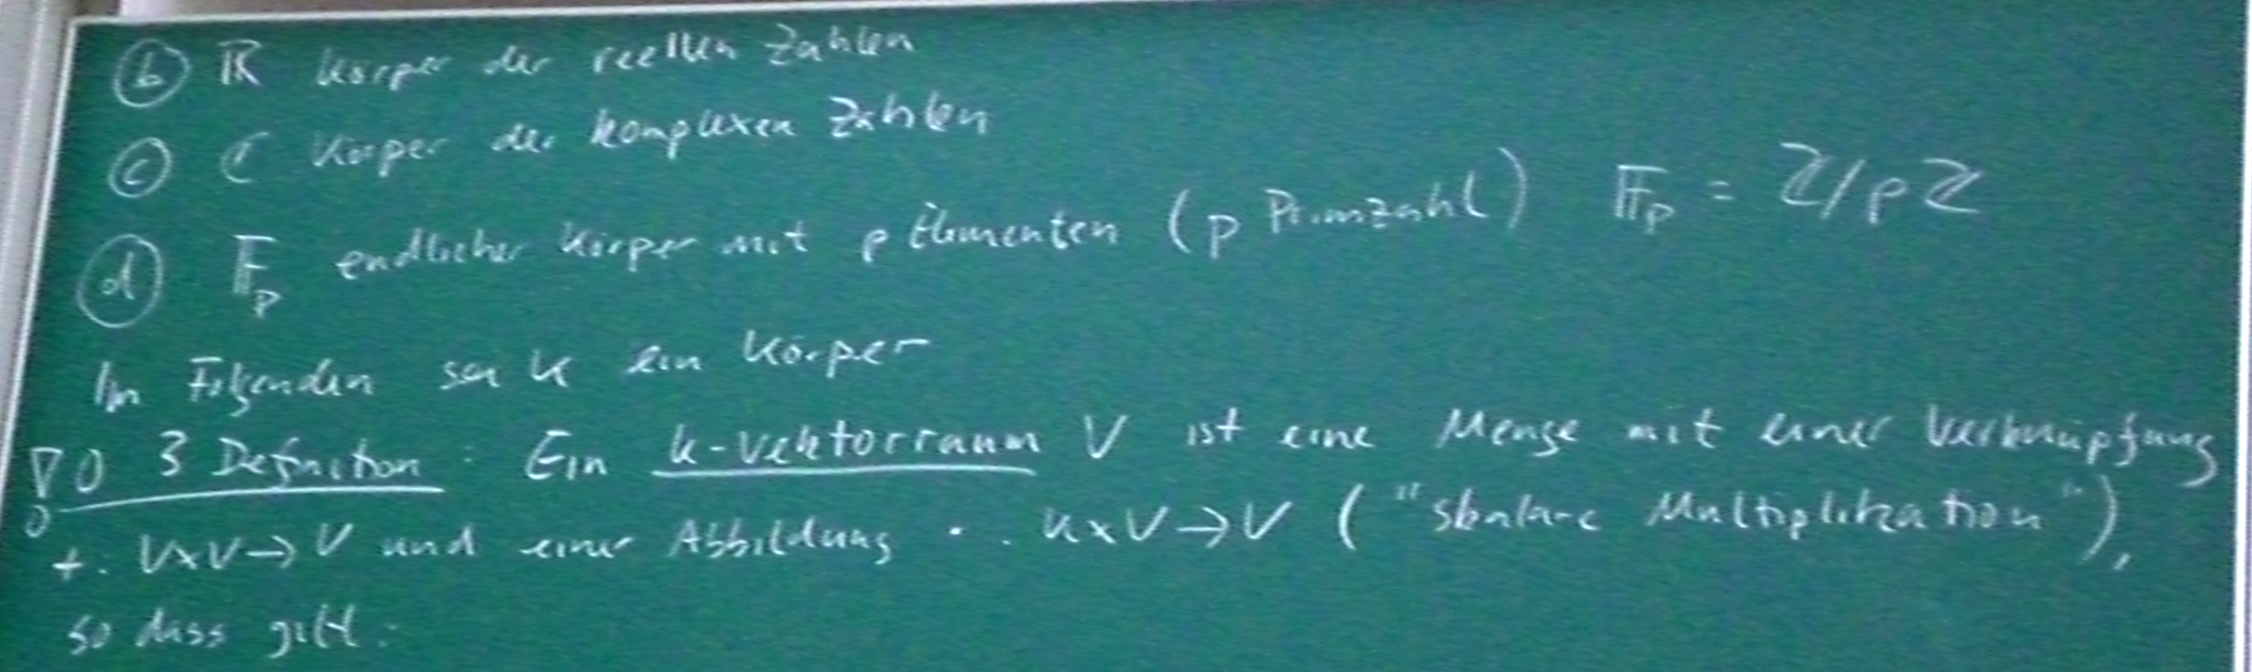 (b) ℝ Körper der reellen Zahlen
(c) ℂ Körper der komplexen Zahlen
(d) 𝔽p endlicher Körper mit p Elementen (p Primzahl) 𝔽p = ℤ/pℤ
Im Folgenden sei K ein Körper
3 Definition: Ein k-Vektorraum V ist eine Menge mit einer Verknüpfung
+: V×V→V und einer Abbildung · : K×V→V ("skalare Multiplikation"),
so dass gilt: